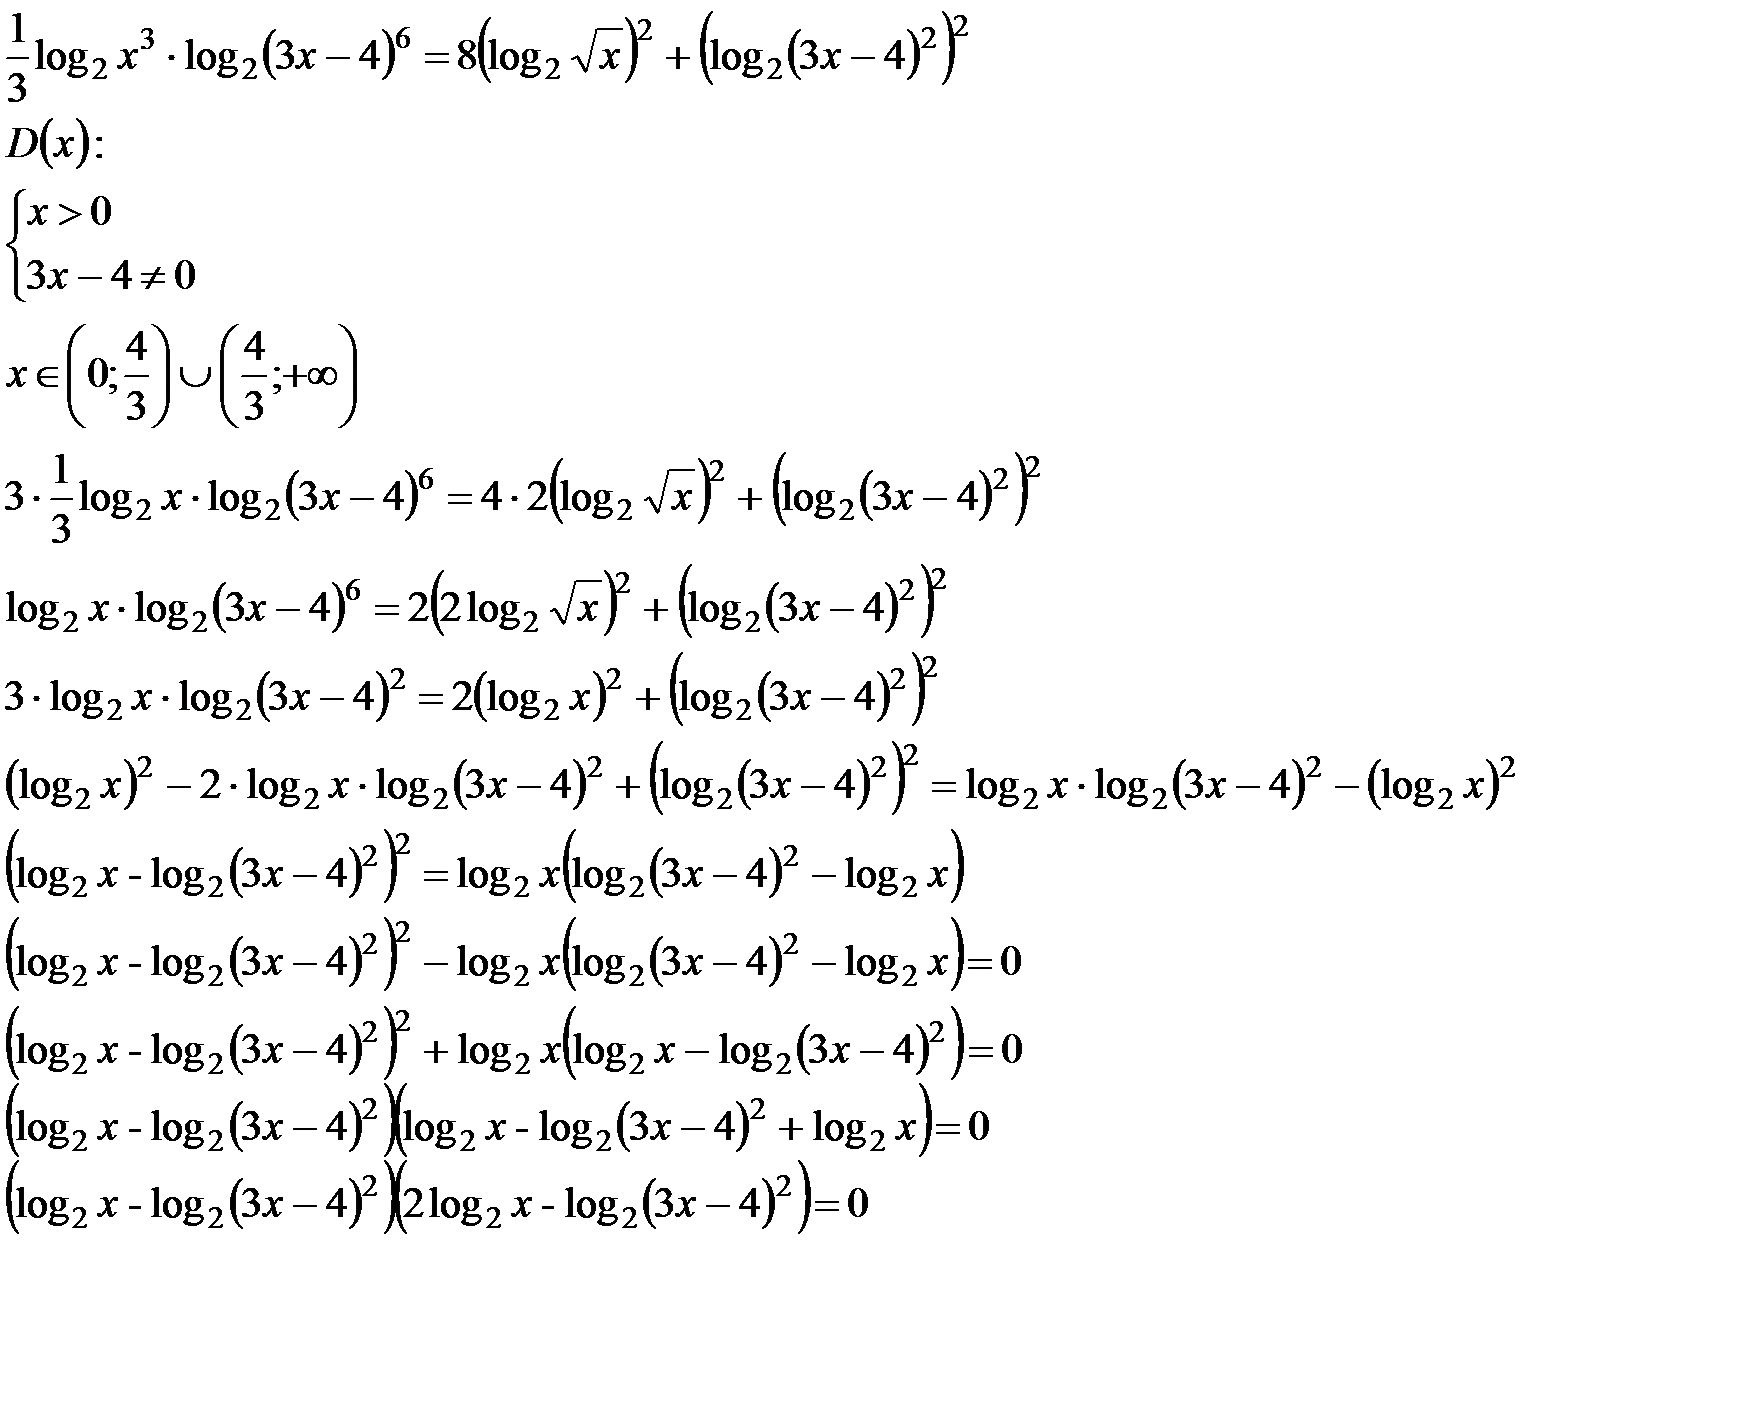 \frac{1}{3}\log_2 x^3 \cdot \log_2(3x-4)^6 = 8\left(\log_2 \sqrt{x}\right)^2 + \left(\log_2(3x-4)^2\right)^2
D(x):
\begin{cases} x > 0 \\ 3x-4 \neq 0 \end{cases}
x \in \left(0; \frac{4}{3}\right) \cup \left(\frac{4}{3}; +\infty\right)
3 \cdot \frac{1}{3}\log_2 x \cdot \log_2(3x-4)^6 = 4 \cdot 2\left(\log_2 \sqrt{x}\right)^2 + \left(\log_2(3x-4)^2\right)^2
\log_2 x \cdot \log_2(3x-4)^6 = 2\left(2\log_2 \sqrt{x}\right)^2 + \left(\log_2(3x-4)^2\right)^2
3 \cdot \log_2 x \cdot \log_2(3x-4)^2 = 2(\log_2 x)^2 + \left(\log_2(3x-4)^2\right)^2
(\log_2 x)^2 - 2 \cdot \log_2 x \cdot \log_2(3x-4)^2 + \left(\log_2(3x-4)^2\right)^2 = \log_2 x \cdot \log_2(3x-4)^2 - (\log_2 x)^2
\left(\log_2 x - \log_2(3x-4)^2\right)^2 = \log_2 x\left(\log_2(3x-4)^2 - \log_2 x\right)
\left(\log_2 x - \log_2(3x-4)^2\right)^2 - \log_2 x\left(\log_2(3x-4)^2 - \log_2 x\right) = 0
\left(\log_2 x - \log_2(3x-4)^2\right)^2 + \log_2 x\left(\log_2 x - \log_2(3x-4)^2\right) = 0
\left(\log_2 x - \log_2(3x-4)^2\right)\left(\log_2 x - \log_2(3x-4)^2 + \log_2 x\right) = 0
\left(\log_2 x - \log_2(3x-4)^2\right)\left(2\log_2 x - \log_2(3x-4)^2\right) = 0